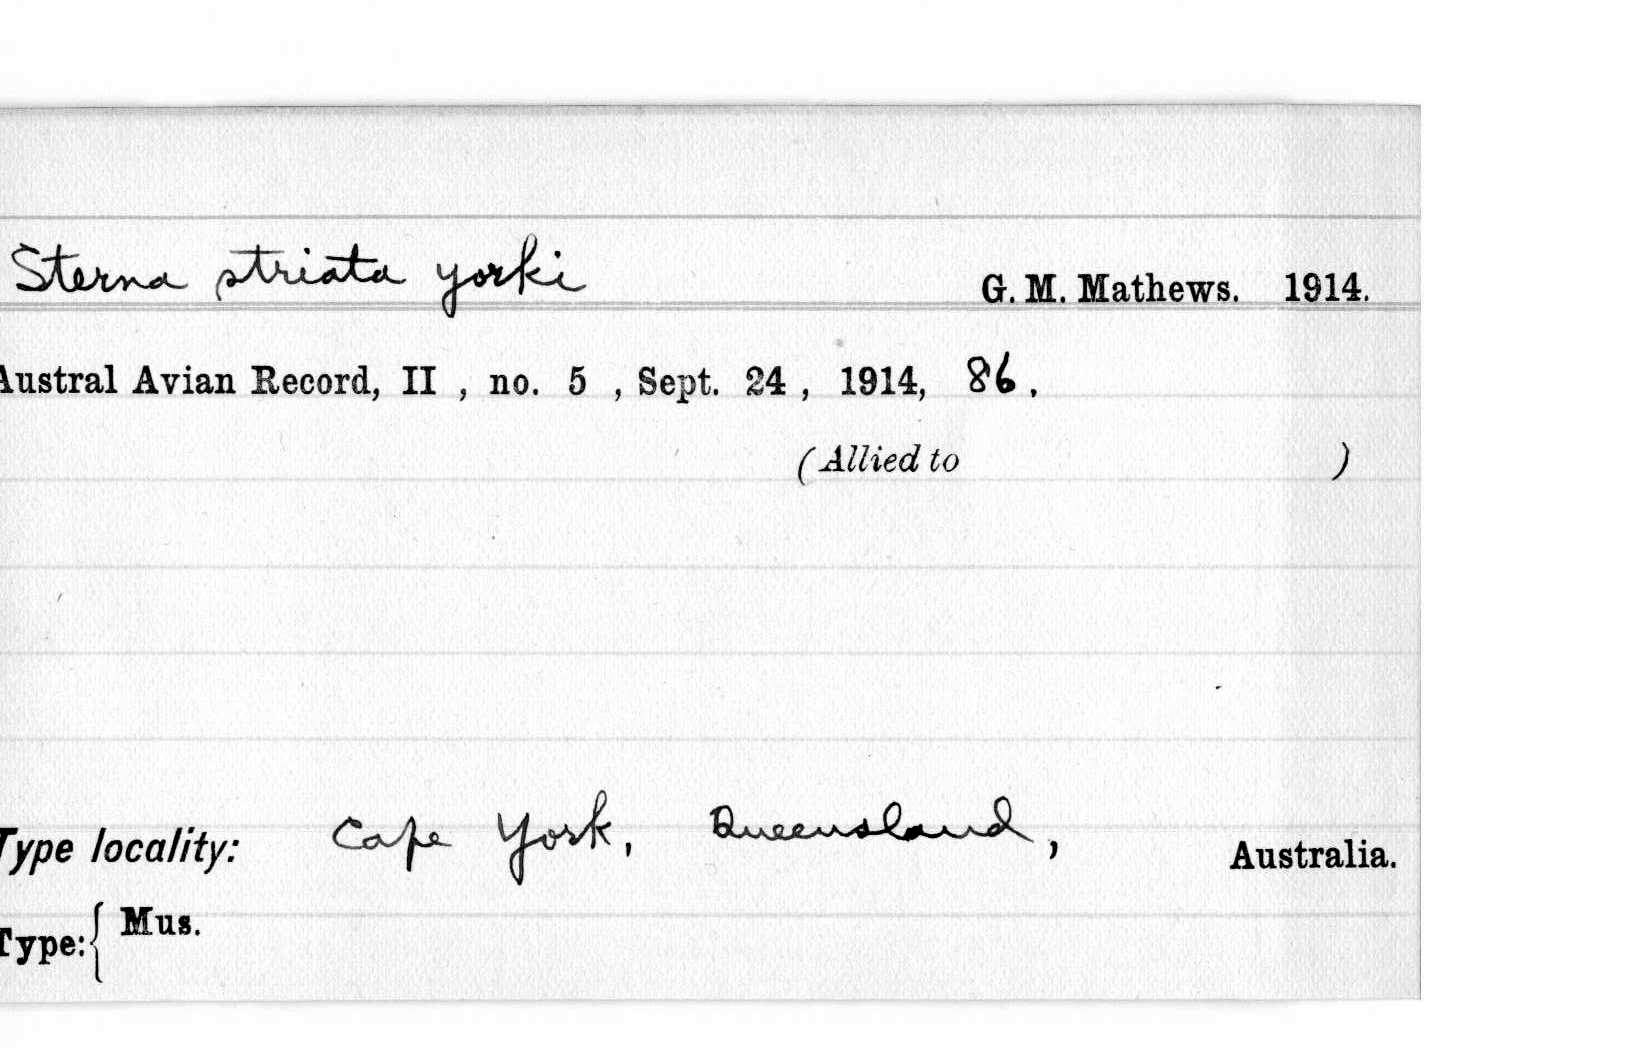 Sterna striata yorki G. M. Mathews. 1914.
Austral Avian Record, II , no. 5 , Sept. 24 , 1914, 86 .
(Allied to )
Type locality: Cape York, Queensland, Australia.
Type: { Mus.